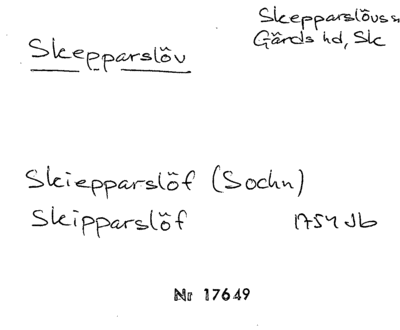 Skepparslövs sn
Gärds hd, Sk
Skepparslöv
Skiepparslöf (Sochn)
Skipparslöf 1754 Jb
Nr 17649